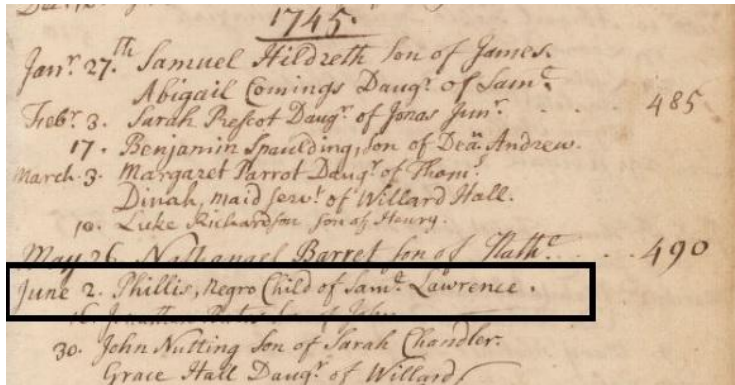 1745.
Janr. 27.th Samuel Hildreth Son of James.
Abigail Comings Daugr. of Saml.
Febr. 3. Sarah Prescot Daugr. of Jonas Junr. . . 485
17. Benjamin Spaulding, son of Dea.n Andrew.
March. 3. Margaret Parrot Daugr. of Thoms.
Dinah, maid servt. of Willard Hall.
10. Luke Richardson son of Henry.
May 26. Nathanael Barret son of Nathl. . . . 490
June 2. Phillis, Negro Child of Saml. Lawrence.
16. Jonathan son of John
30. John Nutting Son of Sarah Chandler.
Grace Hall Daugr. of Willard